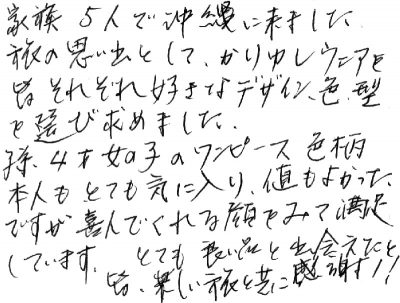 家族5人で沖縄に来ました.
旅の思い出として、かりゆしウェアを
皆それぞれ好きなデザイン、色、型
を選び求めました.
孫、4才女の子のワンピース 色柄
本人もとても気に入り、値もよかった、
ですが喜んでくれる顔をみて満足
しています. とても良い品と出会えたと
皆、楽しい旅と共に感謝!!